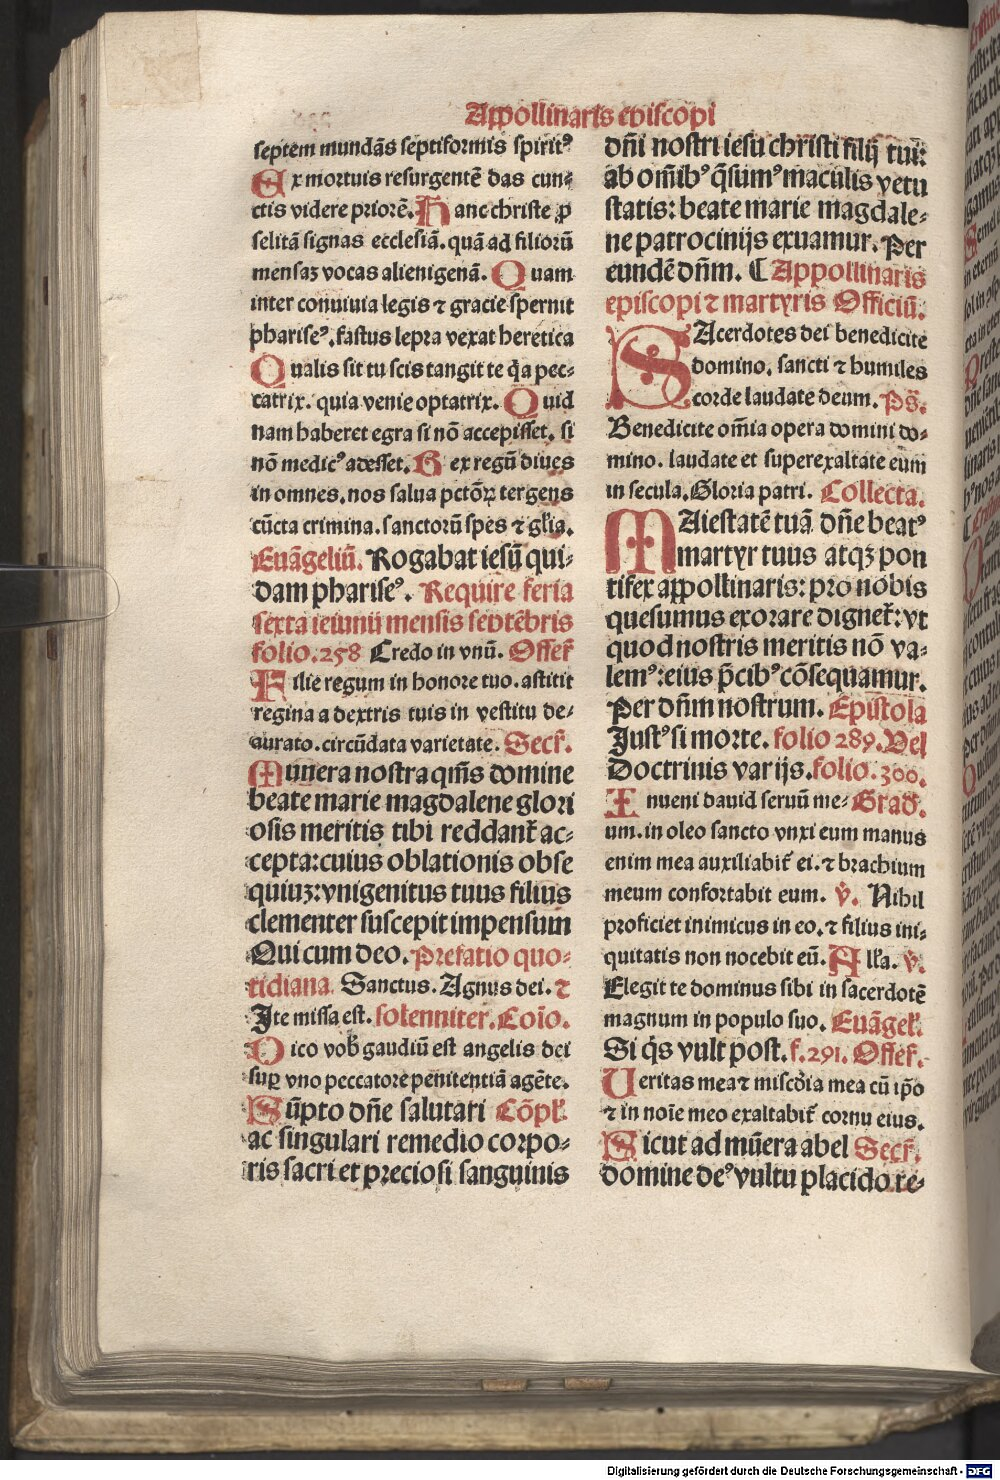 Appollinaris episcopi
septem mundãs septiformis spiritꝰ
Ex mortuis resurgentẽ das cun⸗
ctis videre priorẽ. Hanc christe p̱
selitã signas ecclesiã. quã ad filiorũ
mensaꝫ vocas alienigenã. Quam
inter conuiuia legis ⁊ gracie spernit
phariseꝰ. fastus lepra vexat heretica
Qualis sit tu scis tangit te q̃a pec⸗
catrix. quia venie optatrix. Quid
nam haberet egra si nõ accepisset. si
nõ medicꝰ adesset. Rex regũ diues
in omnes. nos salua pctõꝝ tergens
cũcta crimina. sanctorũ spes ⁊ gl̃ia.
Euãgeliũ. Rogabat iesũ qui⸗
dam phariseꝰ. Require feria
sexta ieiunij mensis septẽbris
folio. 258 Credo in vnũ. Offer̃
Filie regum in honore tuo. astitit
regina a dextris tuis in vestitu de⸗
aurato. circũdata varietate. Secr̃.
Munera nostra qm̃s domine
beate marie magdalene glori
osis meritis tibi reddant̃ ac⸗
cepta: cuius oblationis obse
quiuꝫ: vnigenitus tuus filius
clementer suscepit impensum
Qui cum deo. Prefatio quo⸗
tidiana. Sanctus. Agnus dei. ⁊
Ite missa est. solenniter. Coĩo.
Dico vob̃ gaudiũ est angelis dei
suꝑ vno peccatore penitentiã agẽte.
Sũpto dñe salutari Cõpl̃.
ac singulari remedio corpo⸗
ris sacri et preciosi sanguinis
dñi nostri iesu christi filij tui:
ab om̃ibꝰ q̃sumꝰ maculis vetu
statis: beate marie magdale⸗
ne patrocinijs exuamur. Per
eundẽ dñm. ⸿ Appollinaris
episcopi ⁊ martyris Officiũ.
SAcerdotes dei benedicite
domino. sancti ⁊ humiles
corde laudate deum. Ps̃.
Benedicite om̃ia opera domini do⸗
mino. laudate et superexaltate eum
in secula. Gloria patri. Collecta.
MAiestatẽ tuã dñe beatꝰ
martyr tuus atqꝫ pon
tifex appollinaris: pro nobis
quesumus exorare dignet̃: vt
quod nostris meritis nõ va⸗
lemꝰ: eius p̃cibꝰ cõsequamur.
Per dñm nostrum. Epistola
Justꝰ si morte. folio 289. Vel
Doctrinis varijs. folio. 300.
Inueni dauid seruũ me⸗ Grad̃.
um. in oleo sancto vnxi eum manus
enim mea auxiliabit̃ ei. ⁊ brachium
meum confortabit eum. v̓. Nihil
proficiet inimicus in eo. ⁊ filius ini⸗
quitatis non nocebit eũ. All̃a. v̓.
Elegit te dominus sibi in sacerdotẽ
magnum in populo suo. Euãgel̃.
Si q̃s vult post. f. 291. Offer̃.
Ueritas mea ⁊ misc̃dia mea cũ ip̃o
⁊ in noĩe meo exaltabit̃ cornu eius.
Sicut ad mũera abel Secr̃.
domine deꝰ vultu placido re⸗
Digitalisierung gefördert durch die Deutsche Forschungsgemeinschaft - DFG